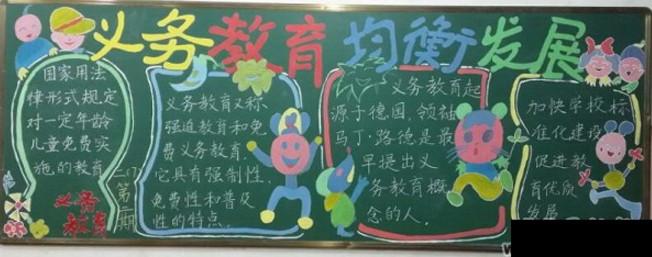 义务教育均衡发展
国家用法
律形式规定
对一定年龄
儿童免费实
施的教育
义务
教育
第二期
义务教育又称
强迫教育和免
费义务教育.
它具有强制性.
免费性和普及
性的特点.
义务教育起
源子德国,领袖
马丁·路德是最
早提出义
务教育概
念的人.
加快学校标
准化建设
促进教
育优质
发展